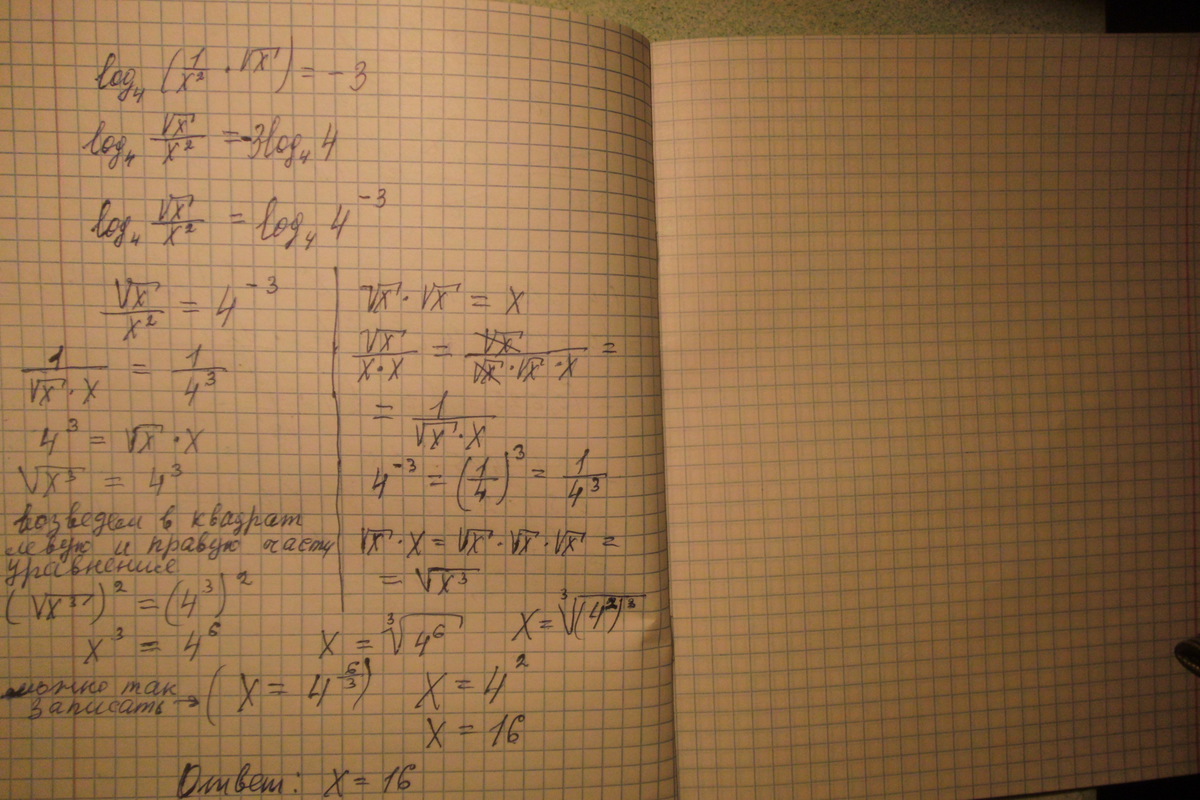 log₄ (1/x² · √x) = -3
log₄ √x/x² = -3log₄ 4
log₄ √x/x² = log₄ 4⁻³
√x/x² = 4⁻³
1/(√x · x) = 1/4³
4³ = √x · x
√x³ = 4³
возведем в квадрат
левую и правую часть
уравнение
(√x³)² = (4³)²
x³ = 4⁶
√x · √x = x
√x/(x · x) = √x/(√x · √x · x) =
= 1/(√x · x)
4⁻³ = (1/4)³ = 1/4³
√x · x = √x · √x · √x =
= √x³
x = ∛4⁶
x = ∛(4²)³
можно так
записать → (x = 4^(6/3))
x = 4²
x = 16
Ответ: x = 16